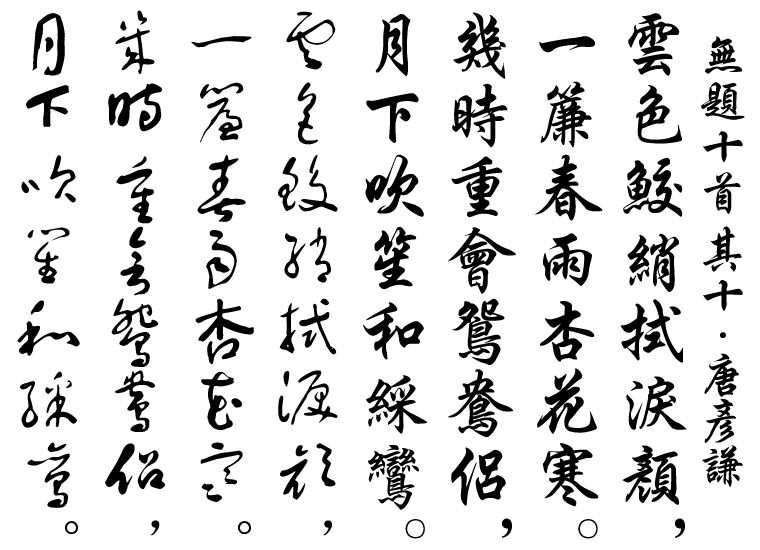 無題十首其十·唐彥謙
雲色鮫綃拭淚顏，
一簾春雨杏花寒。
幾時重會鴛鴦侶，
月下吹笙和綵鸞。
雲色鮫綃拭淚顏，
一簾春雨杏花寒。
幾時重會鴛鴦侶，
月下吹笙和綵鸞。